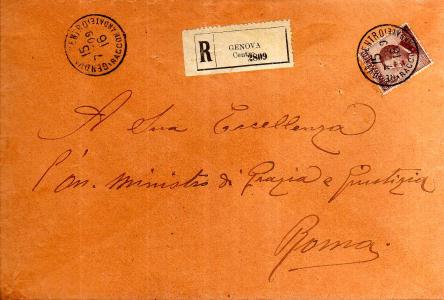 GENOVA CENTRO (RACCOMANDATE)
15
7 09
16
R
GENOVA
Centro
2809
A Sua Eccellenza
l'On. Ministro di Grazia e Giustizia
Roma